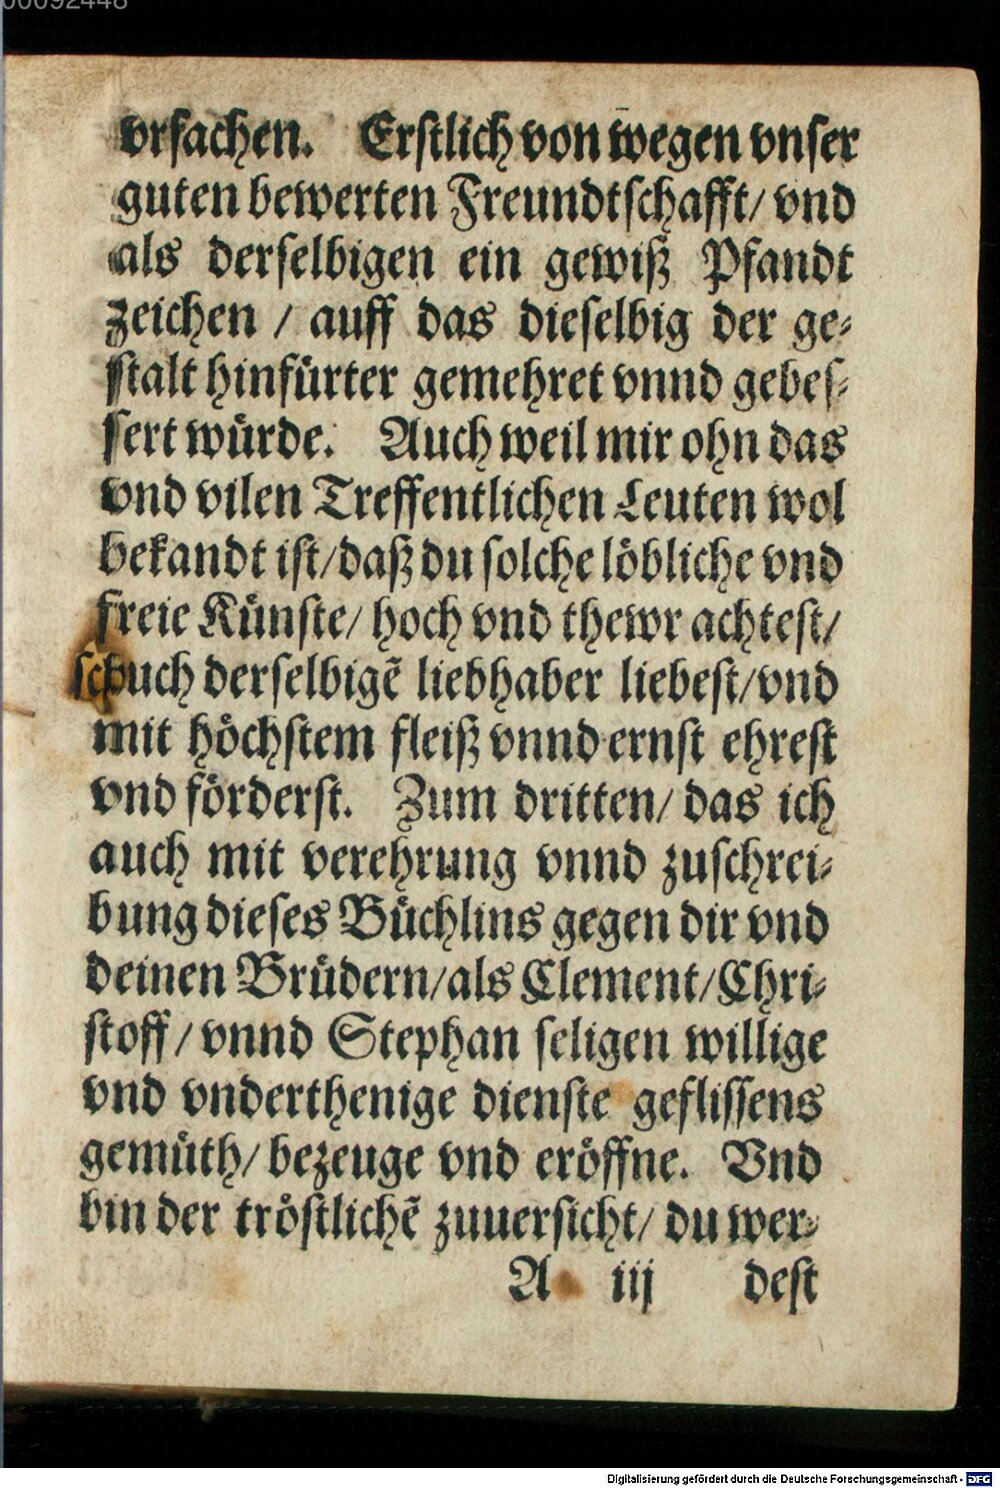 00092448
vrsachen. Erstlich von wegen vnser
guten bewerten Freundtschafft/ vnd
als derselbigen ein gewiß Pfandt
zeichen / auff das dieselbig der ge⸗
stalt hinfürter gemehret vnnd gebes⸗
sert würde. Auch weil mir ohn das
vnd vilen Treffentlichen Leuten wol
bekandt ist/ daß du solche löbliche vnd
freie Künste/ hoch vnd thewr achtest/
derselbigẽ liebhaber liebest/ vnd
mit höchstem fleiß vnnd ernst ehrest
vnd förderst. Zum dritten/ das ich
auch mit verehrung vnnd zuschrei⸗
bung dieses Büchlins gegen dir vnd
deinen Brüdern/ als Clement/ Chri⸗
stoff/ vnnd Stephan seligen willige
vnd vnderthenige dienste geflissens
gemüth/ bezeuge vnd eröffne. Vnd
bin der tröstlichẽ zuuersicht/ du wer⸗
A iij dest
Digitalisierung gefördert durch die Deutsche Forschungsgemeinschaft - DFG